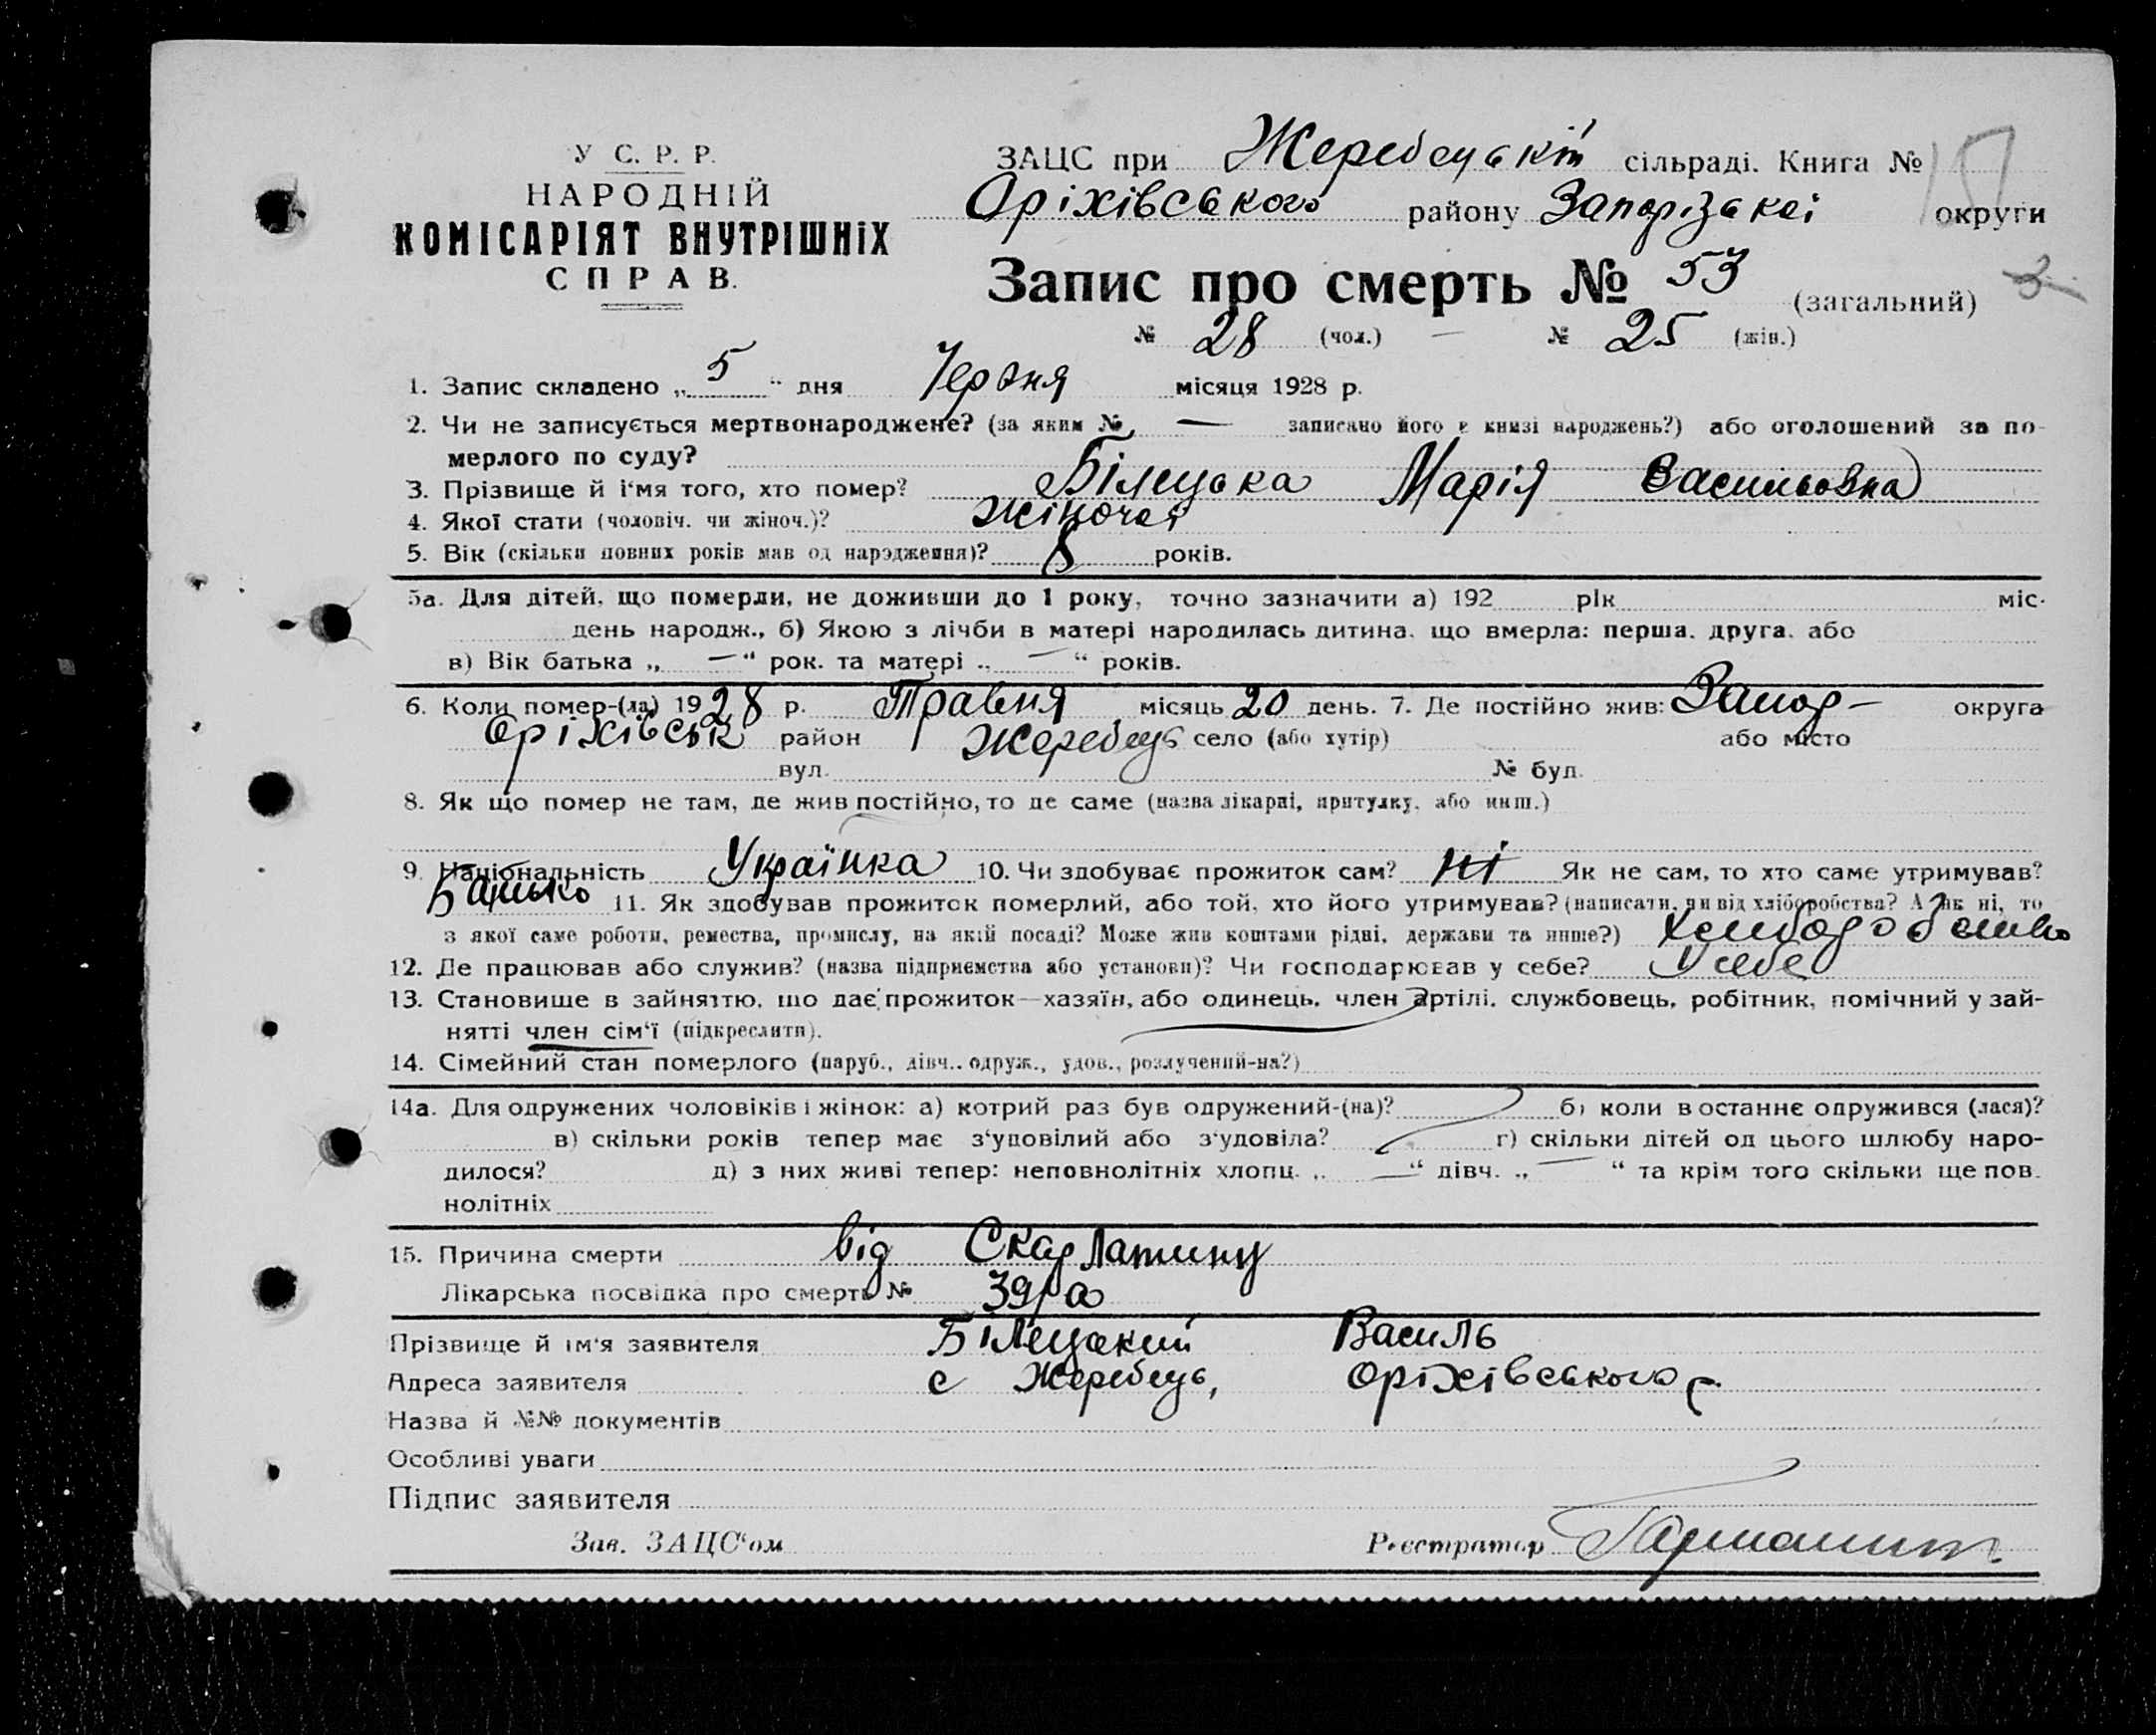 У С. Р. Р.
НАРОДНІЙ
КОМІСАРІЯТ ВНУТРІШНІХ
СПРАВ.
ЗАЦС при Жеребецькій сільраді. Книга №
Оріхівського району Запорізької округи
Запис про смерть № 53 (загальний)
№ 28 (чол.) — № 25 (жін.)
1. Запис складено „ 5 “ дня Червня місяця 1928 р.
2. Чи не записується мертвонароджене? (за яким № — записано його в книзі народжень?) або оголошений за по-
мерлого по суду?
3. Прізвище й і‘мя того, хто помер? Білецька Марія Васильовна
4. Якої стати (чоловіч. чи жіноч.)? жіночої
5. Вік (скільки повних років мав од народження)? 8 років.
5а. Для дітей, що померли, не доживши до 1 року, точно зазначити а) 192 рік міс.
день народж., б) Якою з лічби в матері народилась дитина, що вмерла: перша, друга, або
в) Вік батька „ — “ рок. та матері „ — “ років.
6. Коли помер-(ла) 1928 р. Травня місяць 20 день. 7. Де постійно жив: Запор- округа
Оріхівськ район Жеребець село (або хутір) або місто
вул. № буд.
8. Як що помер не там, де жив постійно, то де саме (назва лікарні, притулку, або инш.)
9. Національність Українка 10. Чи здобуває прожиток сам? ні Як не сам, то хто саме утримував?
Батько 11. Як здобував прожиток померлий, або той, хто його утримував? (написати, чи від хліборобства? А як ні, то
з якої саме роботи, ремества, промислу, на якій посаді? Може жив коштами рідні, держави та инше?) Хлиборобство
12. Де працював або служив? (назва підприємства або установи)? Чи господарював у себе? У себе
13. Становище в зайняттю, що дає прожиток—хазяїн, або одинець, член артілі, службовець, робітник, помічний у зай-
нятті член сім‘ї (підкреслити).
14. Сімейний стан померлого (паруб., дівч., одруж., удов., розлучений-на?)
14а. Для одружених чоловіків і жінок: а) котрий раз був одружений-(на)? б) коли в останнє одружився (лася)?
в) скільки років тепер має з‘удовілий або з‘удовіла? г) скільки дітей од цього шлюбу наро-
дилося? д) з них живі тепер: неповнолітніх хлопц. „ — “ дівч. „ — “ та крім того скільки ще пов.
нолітніх
15. Причина смерти від Скарлатини
Лікарська посвідка про смерть № 39/а
Прізвище й ім‘я заявителя Білецький Василь
Адреса заявителя с Жеребець, Оріхівського р.
Назва й №№ документів
Особливі уваги
Підпис заявителя
Зав. ЗАЦС‘ом Реєстратор